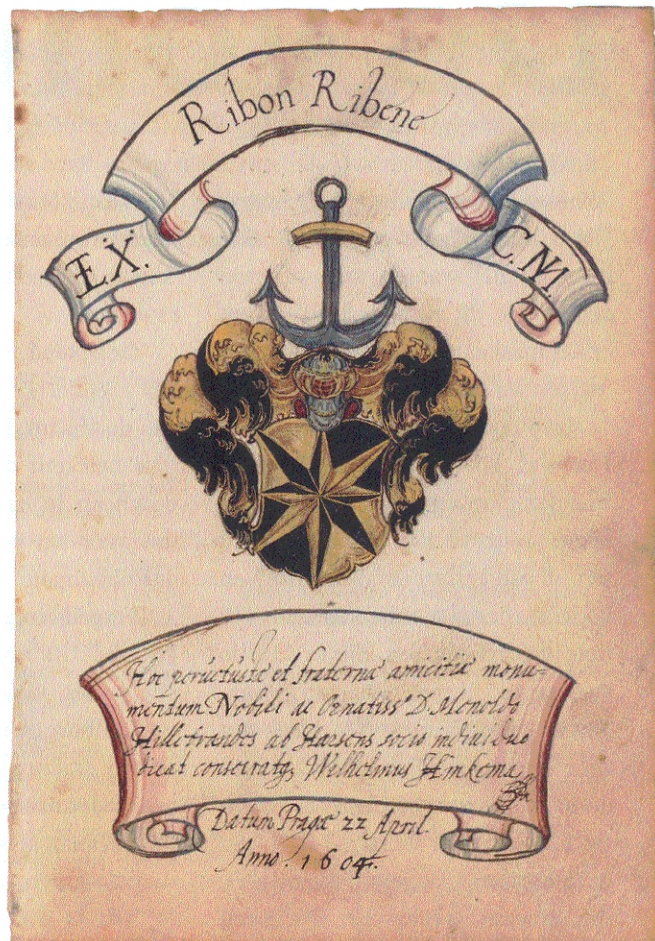 Ribon Ribene
E.X.
C.M.
Hoc peruetustæ et fraternæ amicitiæ monu-
mentum Nobili ac Ornatiss° D.
Hillebrandes ab Harsens socio indiuiduo
dicat consecratq3 Wilhelmus Emkema
Datum Pragæ 22 April.
Anno. 1604.